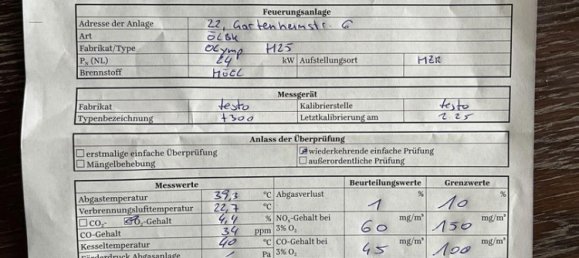 Feuerungsanlage
Adresse der Anlage 22, Gartenheimstr. 6
Art ÖLBK
Fabrikat/Type Olymp H25
PN (NL) 24 kW Aufstellungsort HZR
Brennstoff HöEL
Messgerät
Fabrikat testo Kalibrierstelle testo
Typenbezeichnung t300 Letztkalibrierung am 2.25
Anlass der Überprüfung
erstmalige einfache Überprüfung wiederkehrende einfache Prüfung
Mängelbehebung außerordentliche Prüfung
Messwerte Beurteilungswerte Grenzwerte
Abgastemperatur 39,3 °C Abgasverlust 1 % 10 %
Verbrennungslufttemperatur 22,7 °C
CO₂- O₂-Gehalt 4,4 % NOₓ-Gehalt bei 3% O₂ 60 mg/m³ 150 mg/m³
CO-Gehalt 34 ppm
Kesseltemperatur 40 °C CO-Gehalt bei 3% O₂ 45 mg/m³ 100 mg/m³
Pa